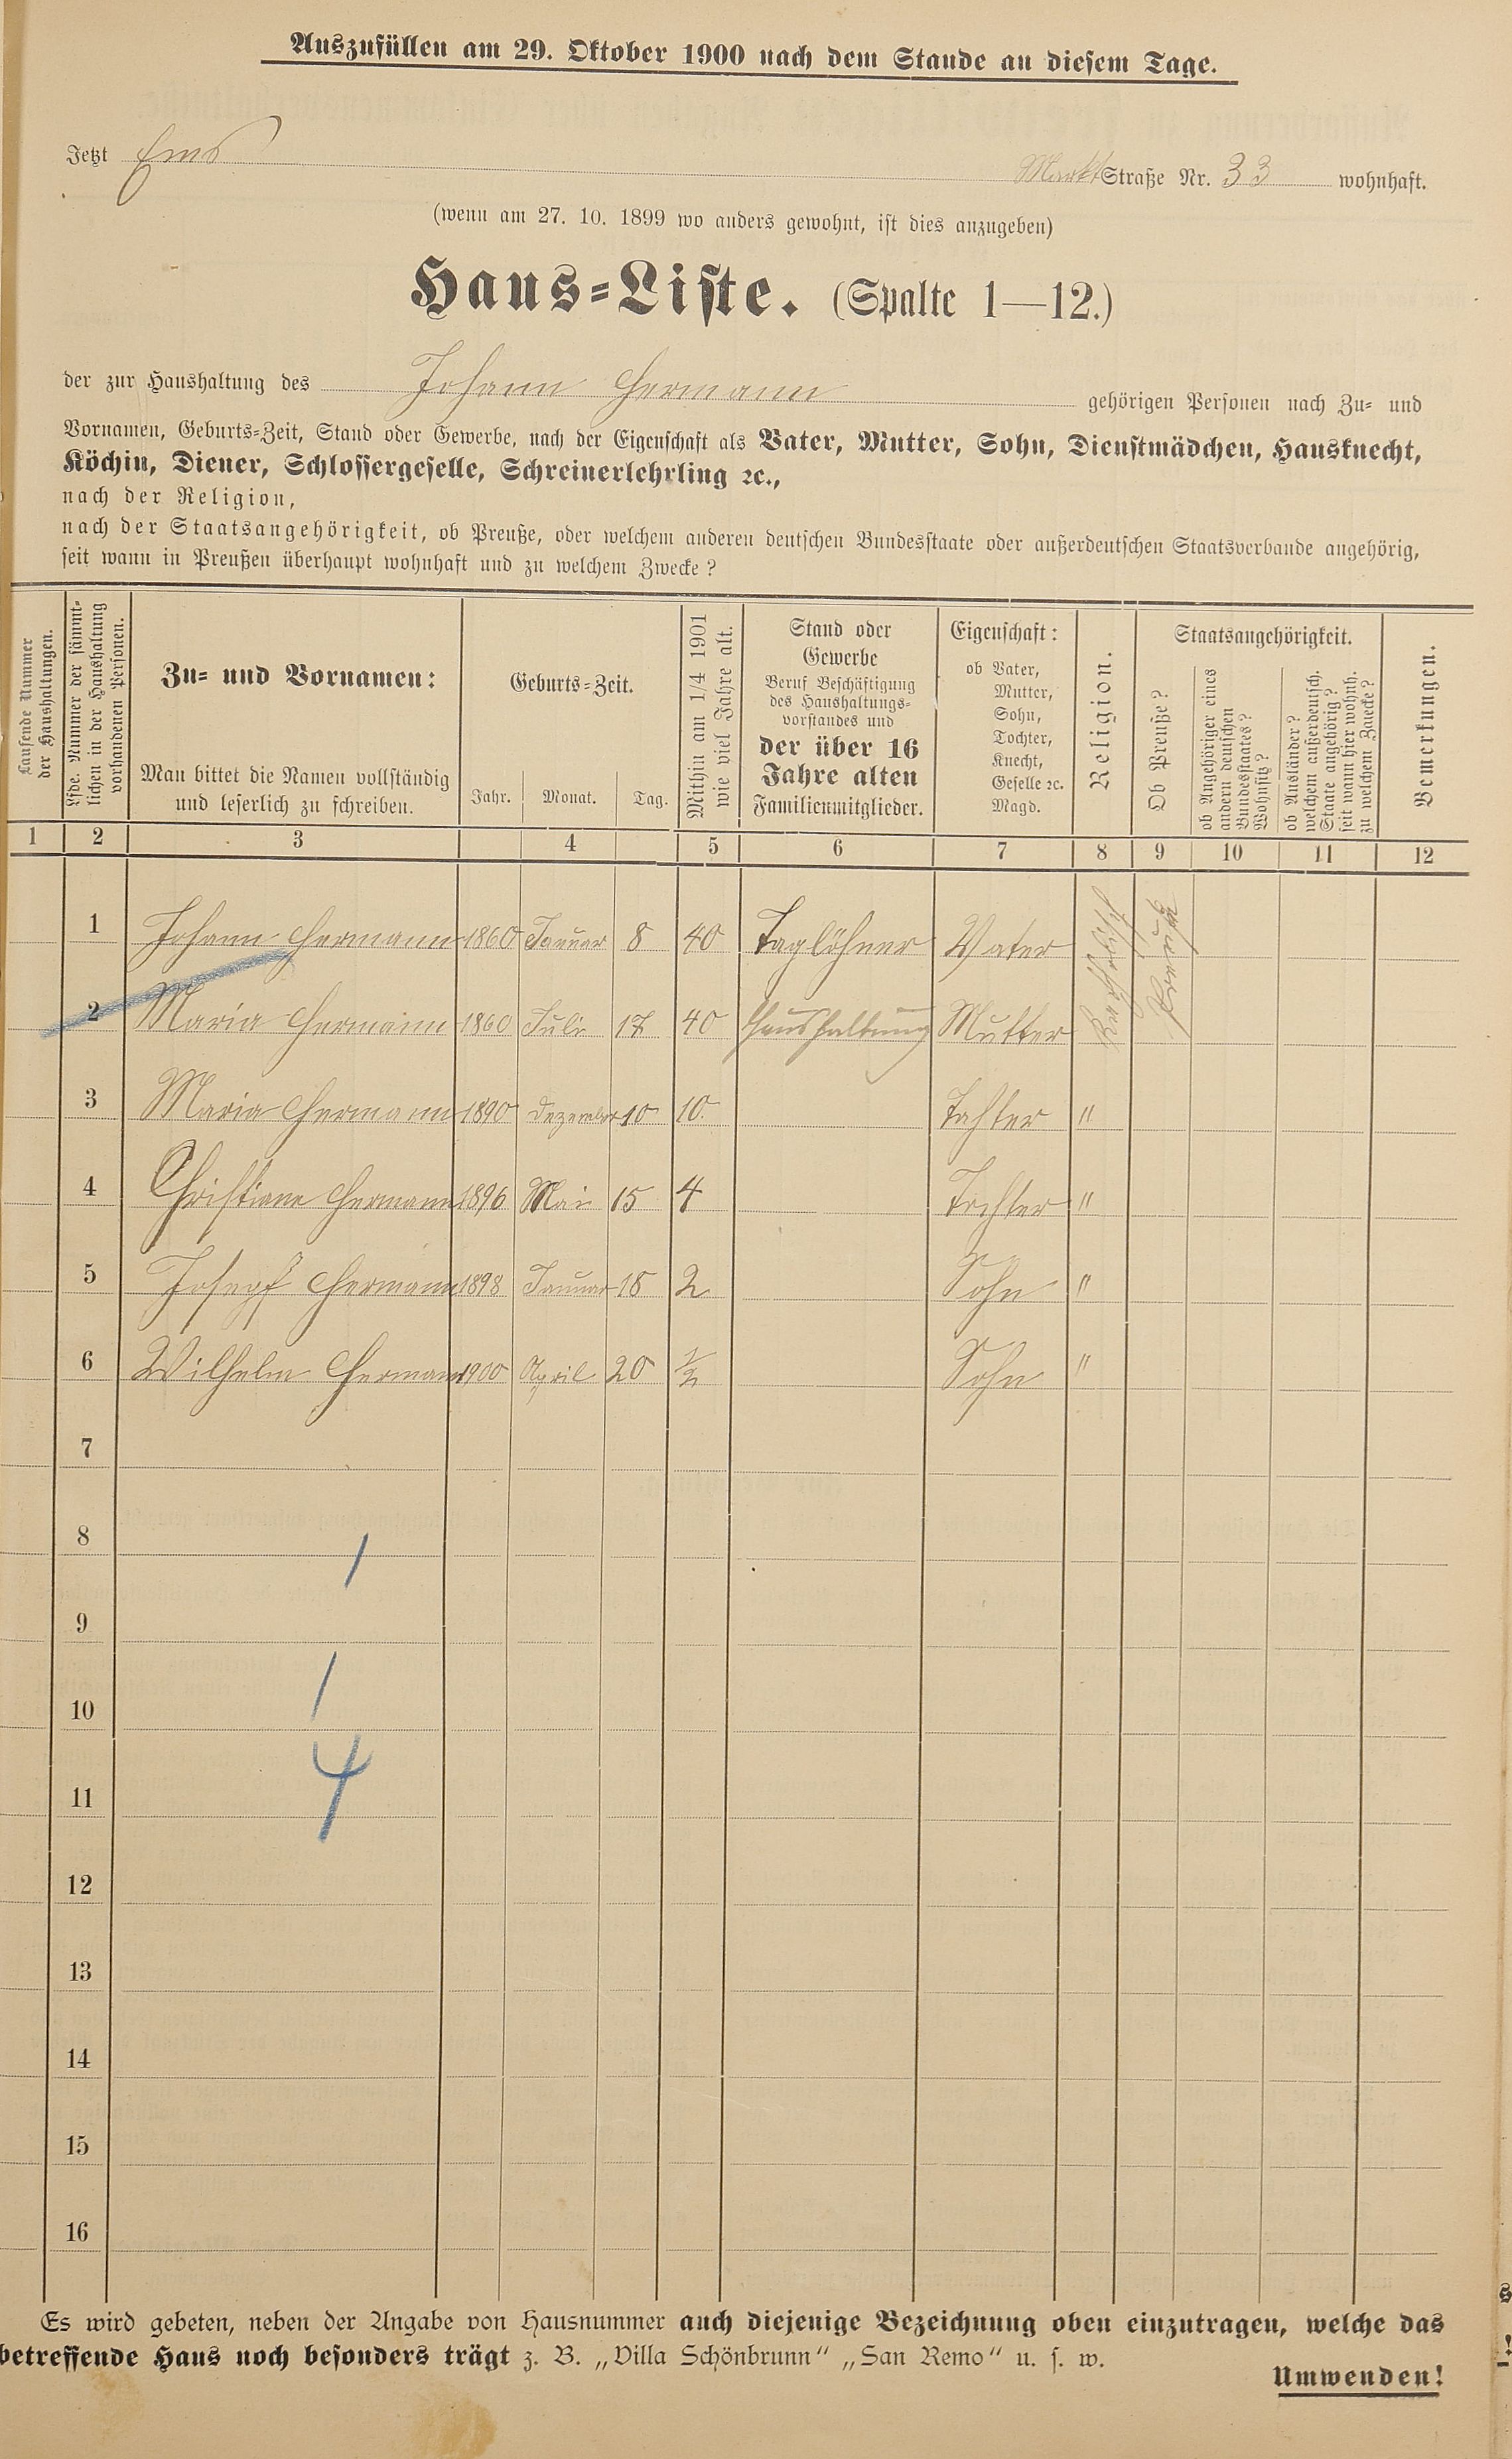 Auszufüllen am 29. Oktober 1900 nach dem Stande an diesem Tage.
Jetzt Ems Markt Straße Nr. 33 wohnhaft.
(wenn am 27. 10. 1899 wo anders gewohnt, ist dies anzugeben)
Haus-Liste. (Spalte 1—12.)
der zur Haushaltung des Johann Hermann gehörigen Personen nach Zu- und
Vornamen, Geburts-Zeit, Stand oder Gewerbe, nach der Eigenschaft als Vater, Mutter, Sohn, Dienstmädchen, Hausknecht,
Köchin, Diener, Schlossergeselle, Schreinerlehrling ꝛc.,
nach der Religion,
nach der Staatsangehörigkeit, ob Preuße, oder welchem anderen deutschen Bundesstaate oder außerdeutschen Staatsverbande angehörig,
seit wann in Preußen überhaupt wohnhaft und zu welchem Zwecke?
Laufende Nummer
der Haushaltungen.
Lfde. Nummer der sämmt-
lichen in der Haushaltung
vorhandenen Personen.
Zu- und Vornamen:
Man bittet die Namen vollständig
und leserlich zu schreiben.
Geburts-Zeit.
Jahr. Monat. Tag.
Mithin am 1/4 1901
wie viel Jahre alt.
Stand oder
Gewerbe
Beruf Beschäftigung
des Haushaltungs-
vorstandes und
der über 16
Jahre alten
Familienmitglieder.
Eigenschaft:
ob Vater,
Mutter,
Sohn,
Tochter,
Knecht,
Geselle ꝛc.
Magd.
Religion.
Staatsangehörigkeit.
Ob Preuße?
ob Angehöriger eines
andern deutschen
Bundesstaates?
Wohnsitz?
ob Ausländer?
welchem außerdeutsch.
Staate angehörig?
seit wann hier wohnh.
zu welchem Zwecke?
Bemerkungen.
1 2 3 4 5 6 7 8 9 10 11 12
1 Johann Hermann 1860 Januar 8 40 Taglöhner Vater Katholisch Preuße
2 Maria Hermann 1860 Juli 17 40 Haushaltung Mutter
3 Maria Hermann 1890 Dezember 10 10 Tahter "
4 Christiane Hermann 1896 Mai 15 4 Tochter "
5 Josepf Hermann 1898 Januar 18 2 Sohn "
6 Wilhelm Hermann 1900 April 20 1/2 Sohn "
7
8 /
9
10 /
11 4
12
13
14
15
16
Es wird gebeten, neben der Angabe von Hausnummer auch diejenige Bezeichnung oben einzutragen, welche das
betreffende Haus noch besonders trägt z. B. „Villa Schönbrunn“ „San Remo“ u. s. w.
Umwenden!